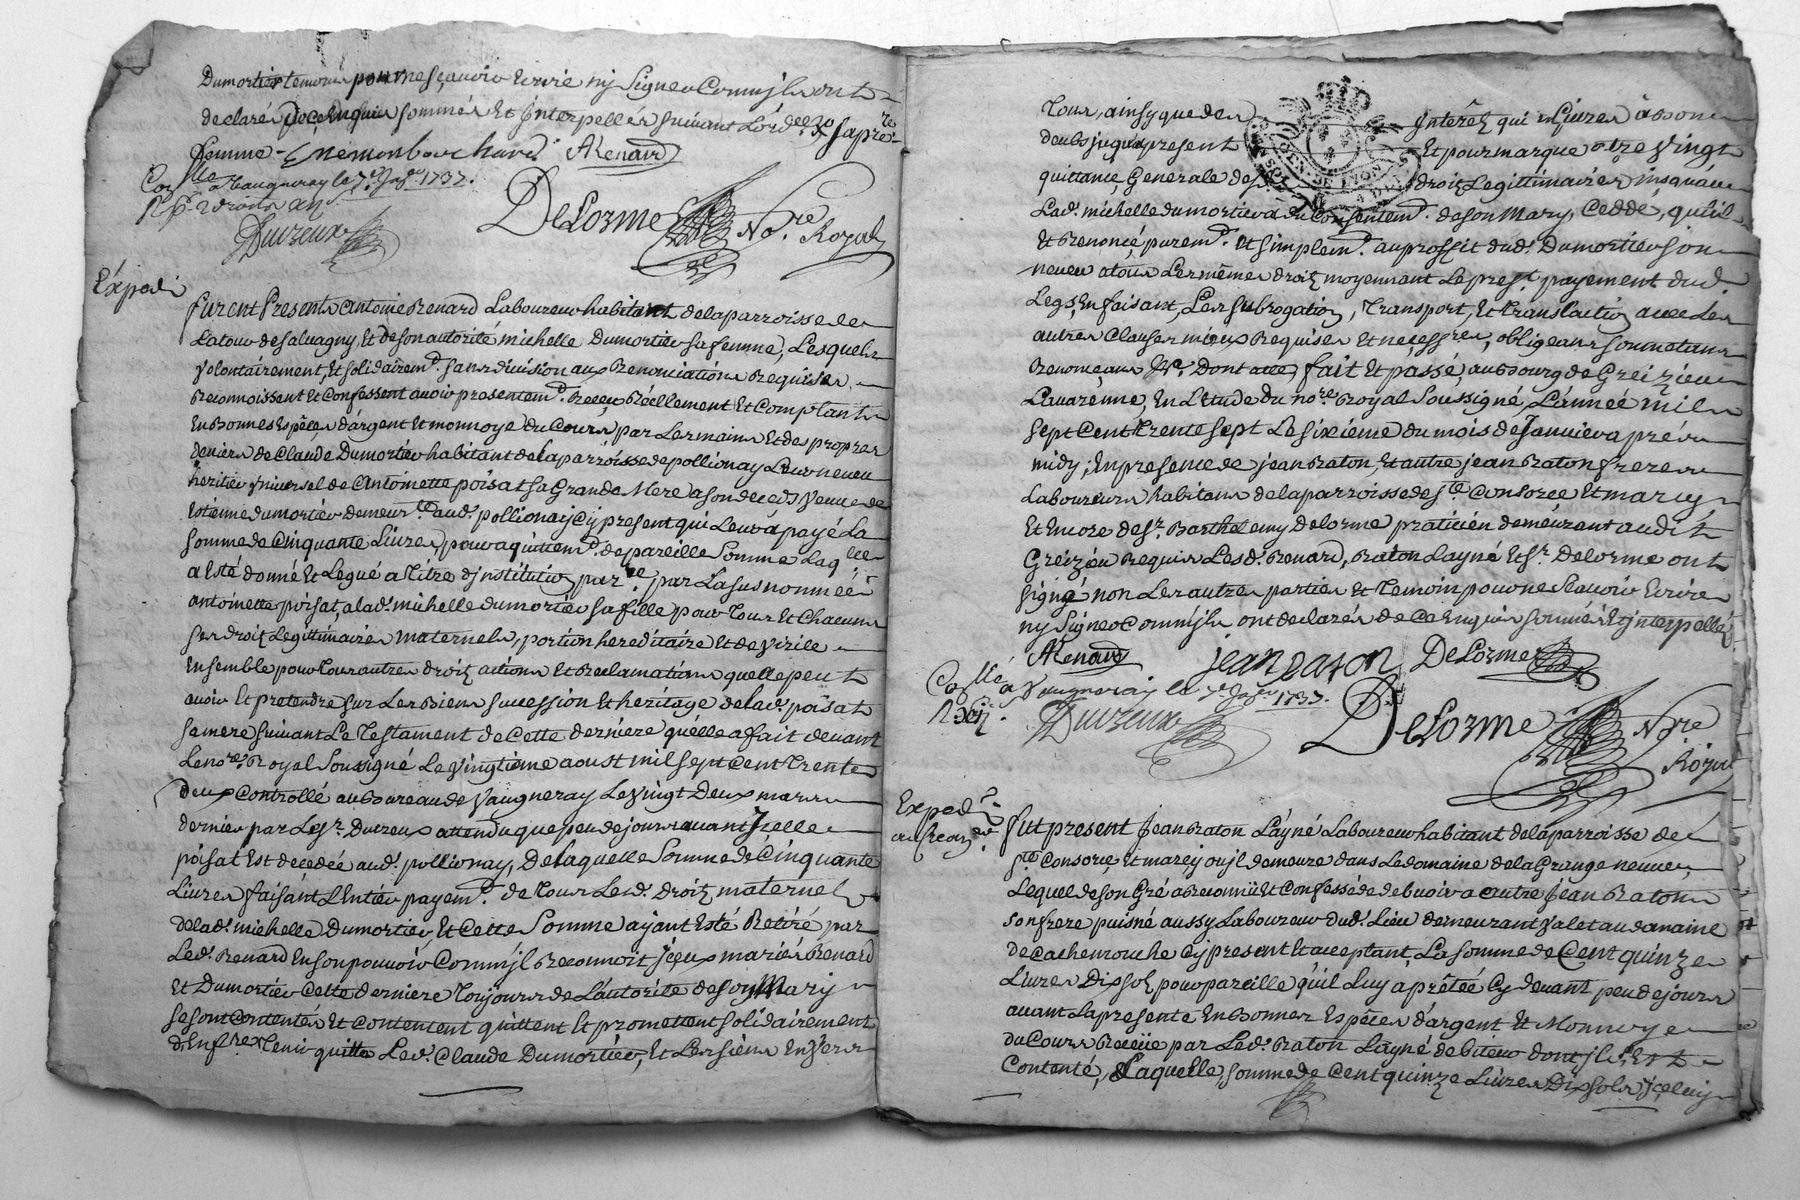 Dumortier temoins pour ne sçavoir Ecrire ny signer Comm'ils ont
declaré de ce Enquis sommés Et Interpellés suivant L'ord.ce sa pre.re
femme - Enemonbouchard ARenard
Con.llé a Vaugneray le 7.e Janv. 1737.
Duvreux DeLorme No.re Royal
Expedié
furent Presents antoine Renard Laboureur habitant de la parroisse de
La tour de salvagny, Et de son autorité michelle Dumortier sa femme, Lesquels
Volontairement, Et solidairem.t sans division aux Renonciations Requises
Reconnoissent Et Confessent avoir presentem.t Reçeu Réellement Et Comptant
En Bonnes Espêces d'argent Et monnoye du Cours, par Les mains Et des propres
deniers de Claude Dumortier habitant de La parroisse de pollionay Leur neveu
heritier Vniversel de antoinette poisat sa Grande Mere a son decéds Veuve de
Estienne dumortier demeur.te aud. pollionay cy present qui Leur a payé La
somme de Cinquante Livres, pour aquittem.t de pareille Somme Laq.lle
a Esté donné Et Legué a Titre d'jnstitution par.re par La susnommée
antoinette poisat, a lad. michelle dumortier sa fille pour Tous Et Chacuns
ses droits Legittimaires maternels, portion hereditaire Et de Virile
Ensemble pour Tous autres droits actions Et Reclamations quelle peut
avoir Et pretendre sur Les Biens succession Et heritage de lad. poisat
sa mere suivant Le Testament de Cette derniere qu'elle a fait devant
Le no.re Royal Soussigné Le Vingtième aoust mil sept Cent Trente
deux Controllé au Bureau de Vaugneray Le Vingt Deux mars
dernier par Le s.r Duvreux attendu que peu de jours avant Icelle
poisat Est decedée aud. pollionay, De Laquelle Somme de Cinquante
Livres faisant L'Entier payem.t de Tous Lesd. Droits maternels
de lad. michelle Dumortier Et Cette Somme ayant Esté Retiré par
Led. Renard En son pouvoir Comm'jl Reconnoit jçeux mariés Renard
Et Dumortier Cette derniere Toujours de L'autorité de son Mary
se sont Contentés Et Contentent quittent Et promettent solidairement
Tenir quitte Led. Claude Dumortier, Et Les siens Envers
Tous, ainsy que des Interêts qui Livres a Bon
deubs jusqua present Et pour marque
quittance Generale de droits Legittimaires
Lad. michelle dumortier a du Consentem.t de son Mary, Cedde, quitte
Et Renoncé purem.t Et simplem.t au proffit dud. Dumortier son
neveu a tous Les mêmes droits moyennant Le pres.t payement dud.
Legs, En faisant, Les subrogation, Transport, Et Translation avec Les
autres Clauses mieux Requises Et necess.res, obligeans soumettans
Renonçans &c. Dont acte, fait Et passé, au Bourg de Greizieu
Lavarenne, En L'Etude du no.re Royal Soussigné, L'année mil
sept Cent Trente sept Le sixième du mois de Janvier aprés
midy; En presence de jean Raton, Et autre jean Raton freres
Laboureurs habitans de la parroisse de s.te Consorce Et marcy
Et Encore de s.r Barthelemy delorme praticien demeurant audit
Greizieu Requis Lesd. Renard, Raton Layné Et s.r Delorme ont
signé non Les autres parties Et Temoin pour ne Sçavoir Ecrire
ny Signer Comm'jls ont declarés de ce Enquis sommés Et jnterpellés
ARenard jean raton DeLorme
Con.llé a Vaugneray le 7.e Janv. 1737.
Duvreux DeLorme No.re
Royal
Exped.é
au Crean.er
fut present Jean Raton L'ayné Laboureur habitant de la parroisse de
s.te Consorce, Et marcy ou jl demeure dans Le domaine de la Grange neuve,
Lequel de son Gré a Reconnü Et Confessé de debvoir a autre Jean Raton
son frere puisné aussy Laboureur dud. Lieu demeurant Valet au domaine
de Cachemouche Cy present Et acceptant, La somme de Cent quinze
Livres Dix sols pour pareille qu'il Luy a prêtée Cy devant peu de jours
avant La presente En Bonnes Espêces d'argent Et Monnoye
du Cours Reçüe par Led. Raton L'ayné debiteur dont jl s'Est
Contenté, Laquelle somme de Cent quinze Livres Dix sols jcelui